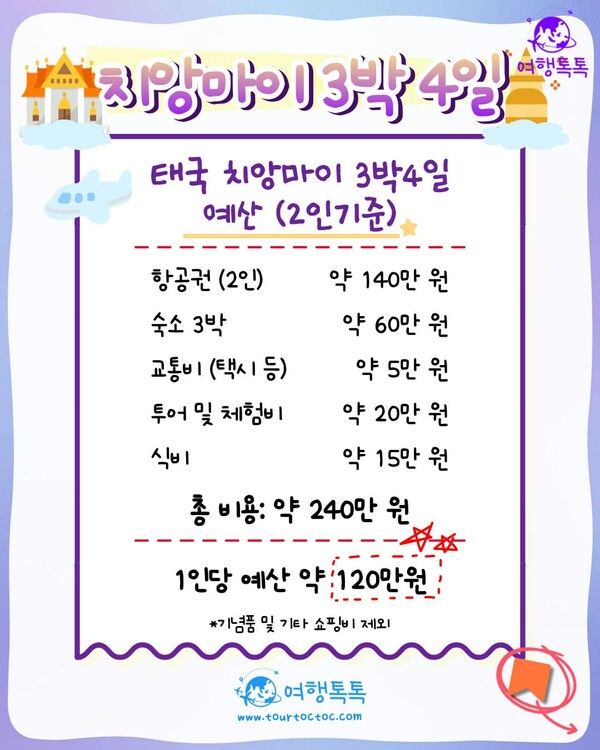 여행톡톡
치앙마이 3박 4일
태국 치앙마이 3박4일
예산 (2인기준)
항공권 (2인) 약 140만 원
숙소 3박 약 60만 원
교통비 (택시 등) 약 5만 원
투어 및 체험비 약 20만 원
식비 약 15만 원
총 비용: 약 240만 원
1인당 예산 약 120만원
*기념품 및 기타 쇼핑비 제외
여행톡톡
www.tourtoctoc.com